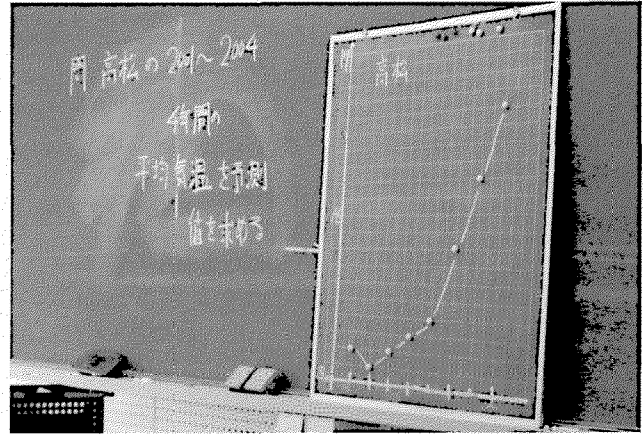 問 高松の2001〜2004
4年間の
平均気温を予測
値を求める
高松